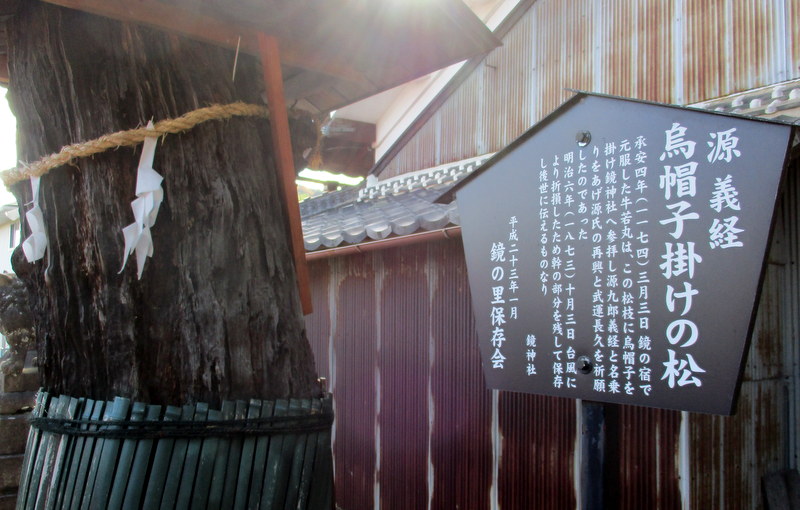 源 義経
烏帽子掛けの松
承安四年(一一七四)三月三日 鏡の宿で
元服した牛若丸は、この松枝に烏帽子を
掛け鏡神社へ参拝し源九郎義経と名乗
りをあげ源氏の再興と武運長久を祈願
したのであった
明治六年(一八七三)十月三日 台風に
より折損したため幹の部分を残して保存
し後世に伝えるものなり
平成二十三年一月
鏡神社
鏡の里保存会